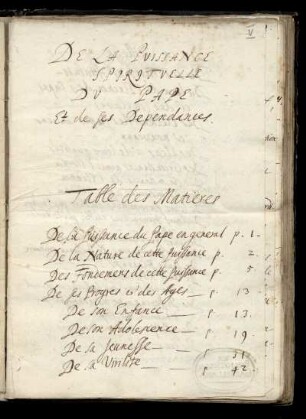 DE LA PUISSANCE
SPIRITUELLE
DU PAPE
Et de ses Dependances.
Table des Matieres
De la Puissance du Pape en general p. 1.
De la Nature de cette puissance p. 2.
Des Fondemens de cette puissance p. 5
De ses Progres et des Ages p. 13
De son Enfance p. 13.
De son Adolescence p. 19.
De sa Jeunesse 31.
De sa Virilité p. 42.